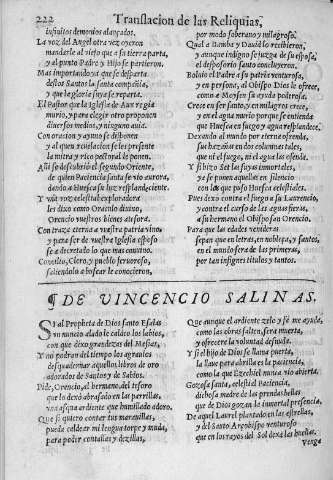 222 Translacion de las Reliquias,
infinitos demonios alançados.
La voz del Angel otra vez oyeron
mandarle al viejo que a su tierra parta,
y al punto Padre y Hijo se partieron.
Mas importando ya que se departa
destos Santos la santa compañia,
y que la gloria suya se reparta.
El Pastor que la Iglesia de Aux regia
murio, y para elegir otro proponen
diversos medios, y ninguno avia.
Con oracion y ayuno se disponen
y al quien revelacion se les presente
la mitra y rico pectoral le ponen.
Assi se descubrio el segundo Oriente,
de quien Huesca siendo santa fue su aurora,
dando a Huesca su luz resplandeciente.
Y una voz celestial
les dixo como Orencio divino,
Orencio vuestros bienes atesora.
Con traza eterna a vuestra patria vino,
y para ser de vuestra Iglesia esposo
se a decretado lo que mas convino.
Concilio, Clero, y pueblo fervoroso,
saliendole a buscar le conocieron,
por modo soberano y milagroso.
Qual a Bamba y David lo recibieron,
y aunque indigno se juzga de su esposa,
el desposorio santo concluyeron.
Bolvio el Padre a su patria venturosa,
y en persona, al Obispo Dios le ofrece,
como a Moysen su ayuda poderosa.
Crece en ser santo, y en milagros crece,
y en el agua murio porque se entienda
que Huesca en fuego y agua resplandece.
Dexando al mundo por eterna ofrenda,
sus hazañas en dos colunas tales,
que ni el fuego, ni el agua las ofenda.
Y si hizo Set las suyas inmortales,
y se ponen aquellas en silencio
con las que puso Huesca celestiales.
Pues dexò contra el fuego a su Laurencio,
y contra el curso de las aguas fieras,
a su hermano el Obispo san Orencio.
Para que las edades venideras
sepan que es en letras, en nobleza, y santos,
en el mundo sera de las primeras,
por tan insignes titulos y tantos.
¶DE VINCENCIO SALINAS.
SI al Propheta de Dios santo Esaias
un nuncio alado le caldeò los labios,
con que dixo grandezas del Mesias,
Y no pudron del tiempo los agravios
desquadernar aquellos libros de oro
adorados de Santos y de Sabios.
Pide, Orencio, al hermano del tesoro
que lo dexò abrasado en las parrillas,
una asqua ardiente que humillado adoro.
Que si quiero contar sus maravillas,
pueda caldear mi lengua torpe y muda,
para poder contallas y dezillas,
Que aunque el ardiente zelo y fè me ayuda,
como las obras falten, sera muerta,
y ofrecere la voluntad desnuda.
Y si el hijo de Dios se llama puerta,
la llave para abrilla es la paciencia,
como la que Ezechiel nunca vio abierta.
Gozosa santa, celestial Paciencia,
dichosa madre de las prendas bellas
que de Dios gozan la inmortal presencia.
De aquel Laurel plantado en las estrellas,
y del Santo Arçobispo venturoso
que en los rayos del Sol dexa las huellas.
Venga